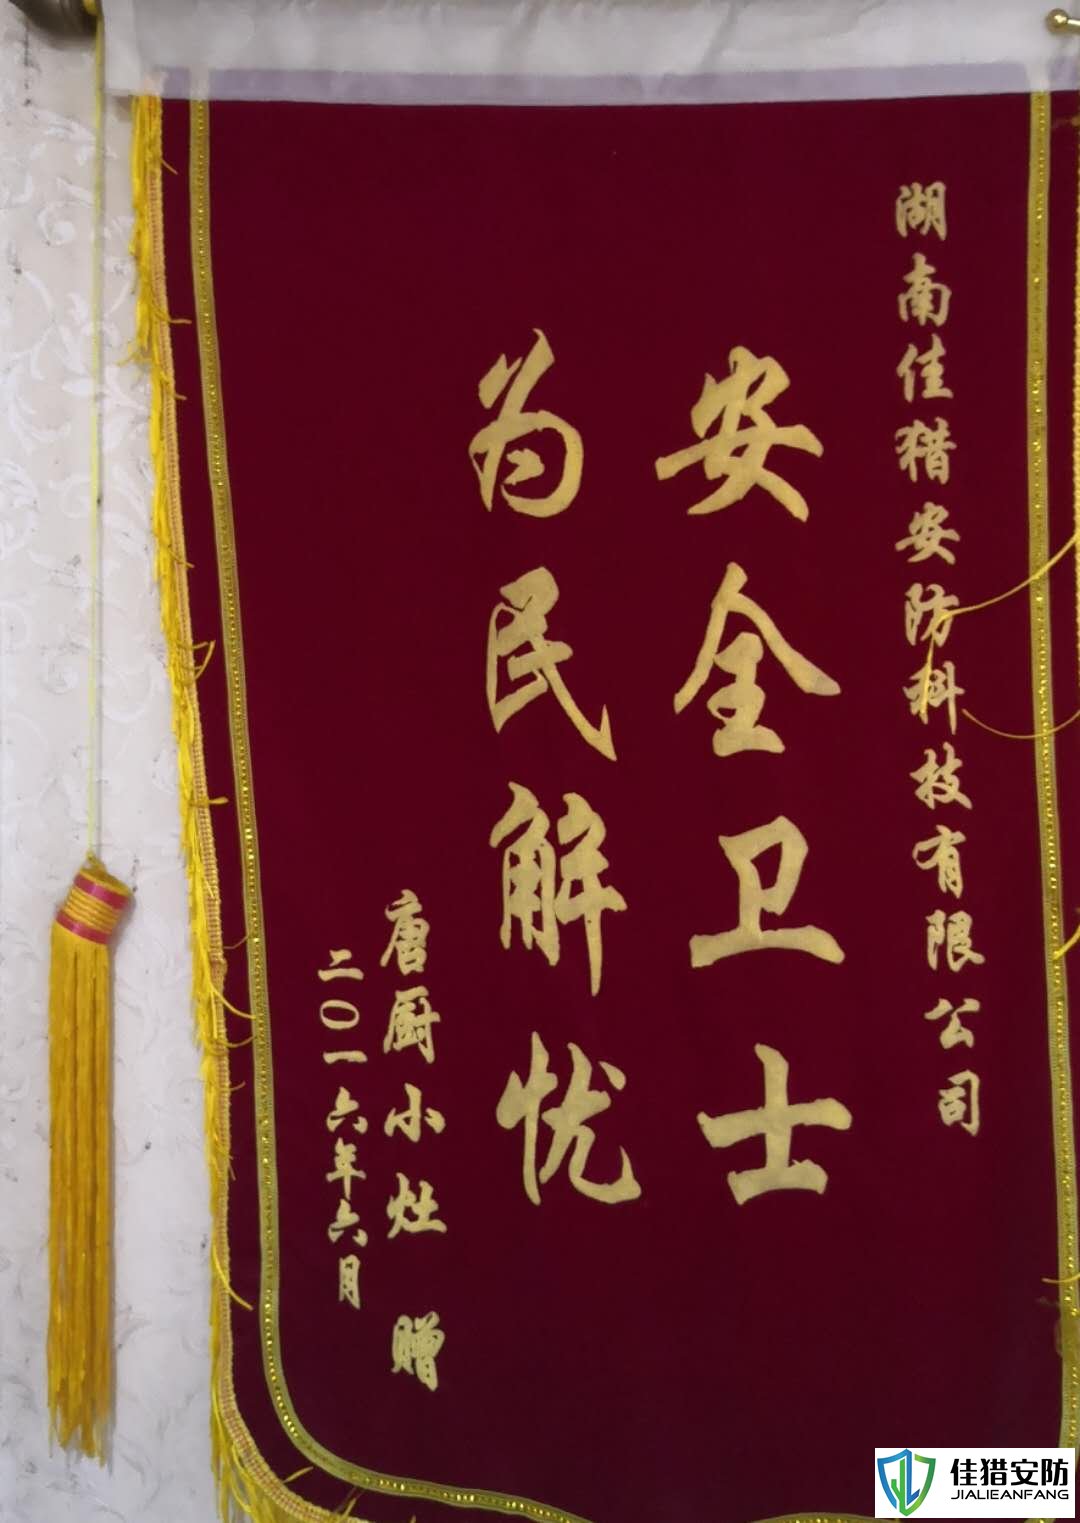 湖南佳猎安防科技有限公司
安全卫士
为民解忧
唐厨小灶 赠
二〇一六年六月
佳猎安防
JIALIEANFANG